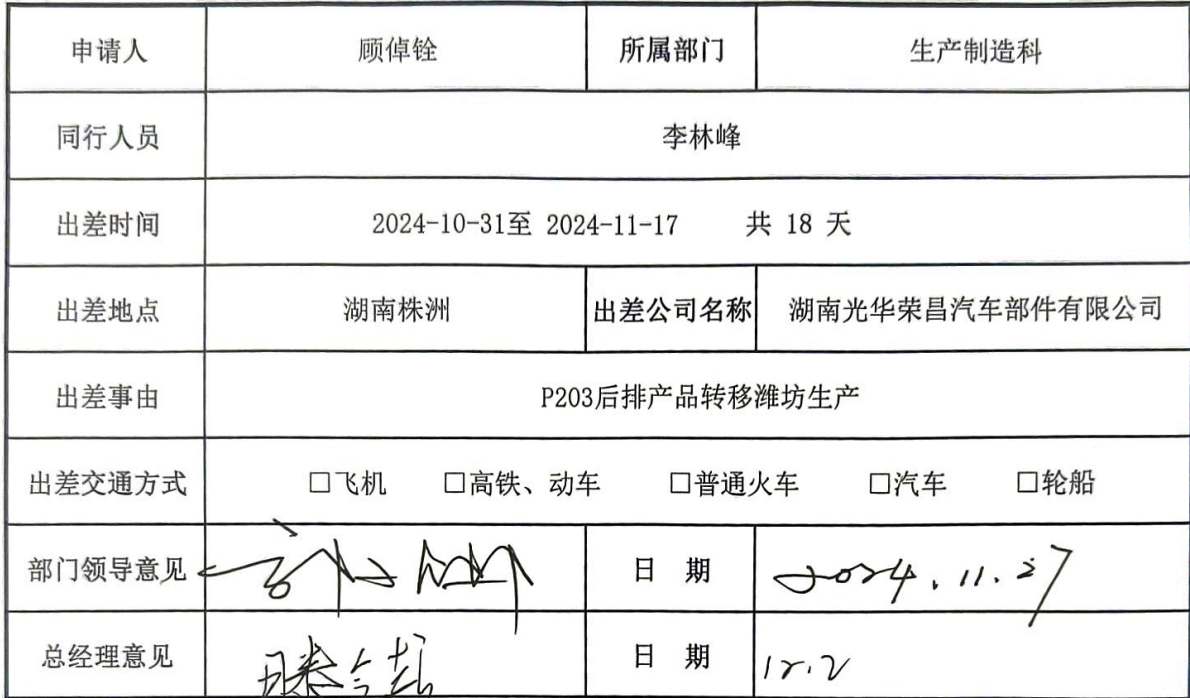 申请人 顾倬铨 所属部门 生产制造科
同行人员 李林峰
出差时间 2024-10-31至 2024-11-17 共 18 天
出差地点 湖南株洲 出差公司名称 湖南光华荣昌汽车部件有限公司
出差事由 P203后排产品转移潍坊生产
出差交通方式 □飞机 □高铁、动车 □普通火车 □汽车 □轮船
部门领导意见 日 期 2024.11.27
总经理意见 日 期 12.2